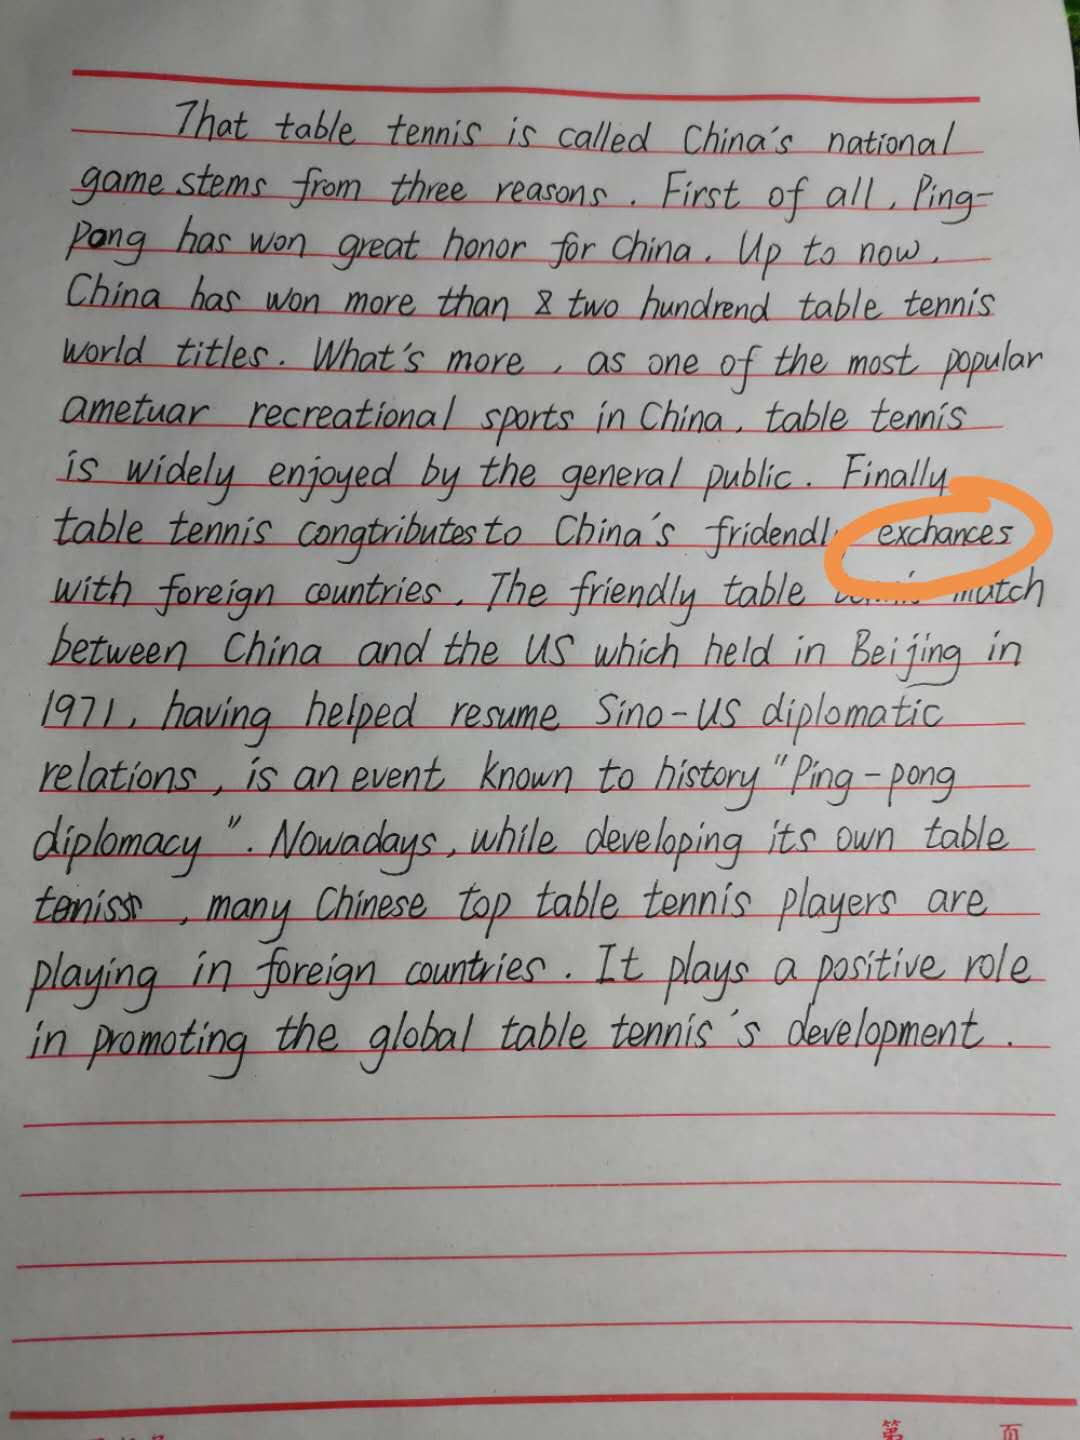 That table tennis is called China's national
game stems from three reasons. First of all, Ping-
Pong has won great honor for China. Up to now,
China has won more than two hundrend table tennis
world titles. What's more, as one of the most popular
ametuar recreational sports in China, table tennis
is widely enjoyed by the general public. Finally
table tennis congtributes to China's fridendly exchances
with foreign countries. The friendly table tennis match
between China and the US which held in Beijing in
1971, having helped resume Sino-US diplomatic
relations, is an event known to history "Ping-pong
diplomacy". Nowadays, while developing its own table
teniss, many Chinese top table tennis players are
playing in foreign countries. It plays a positive role
in promoting the global table tennis's development.
第 页